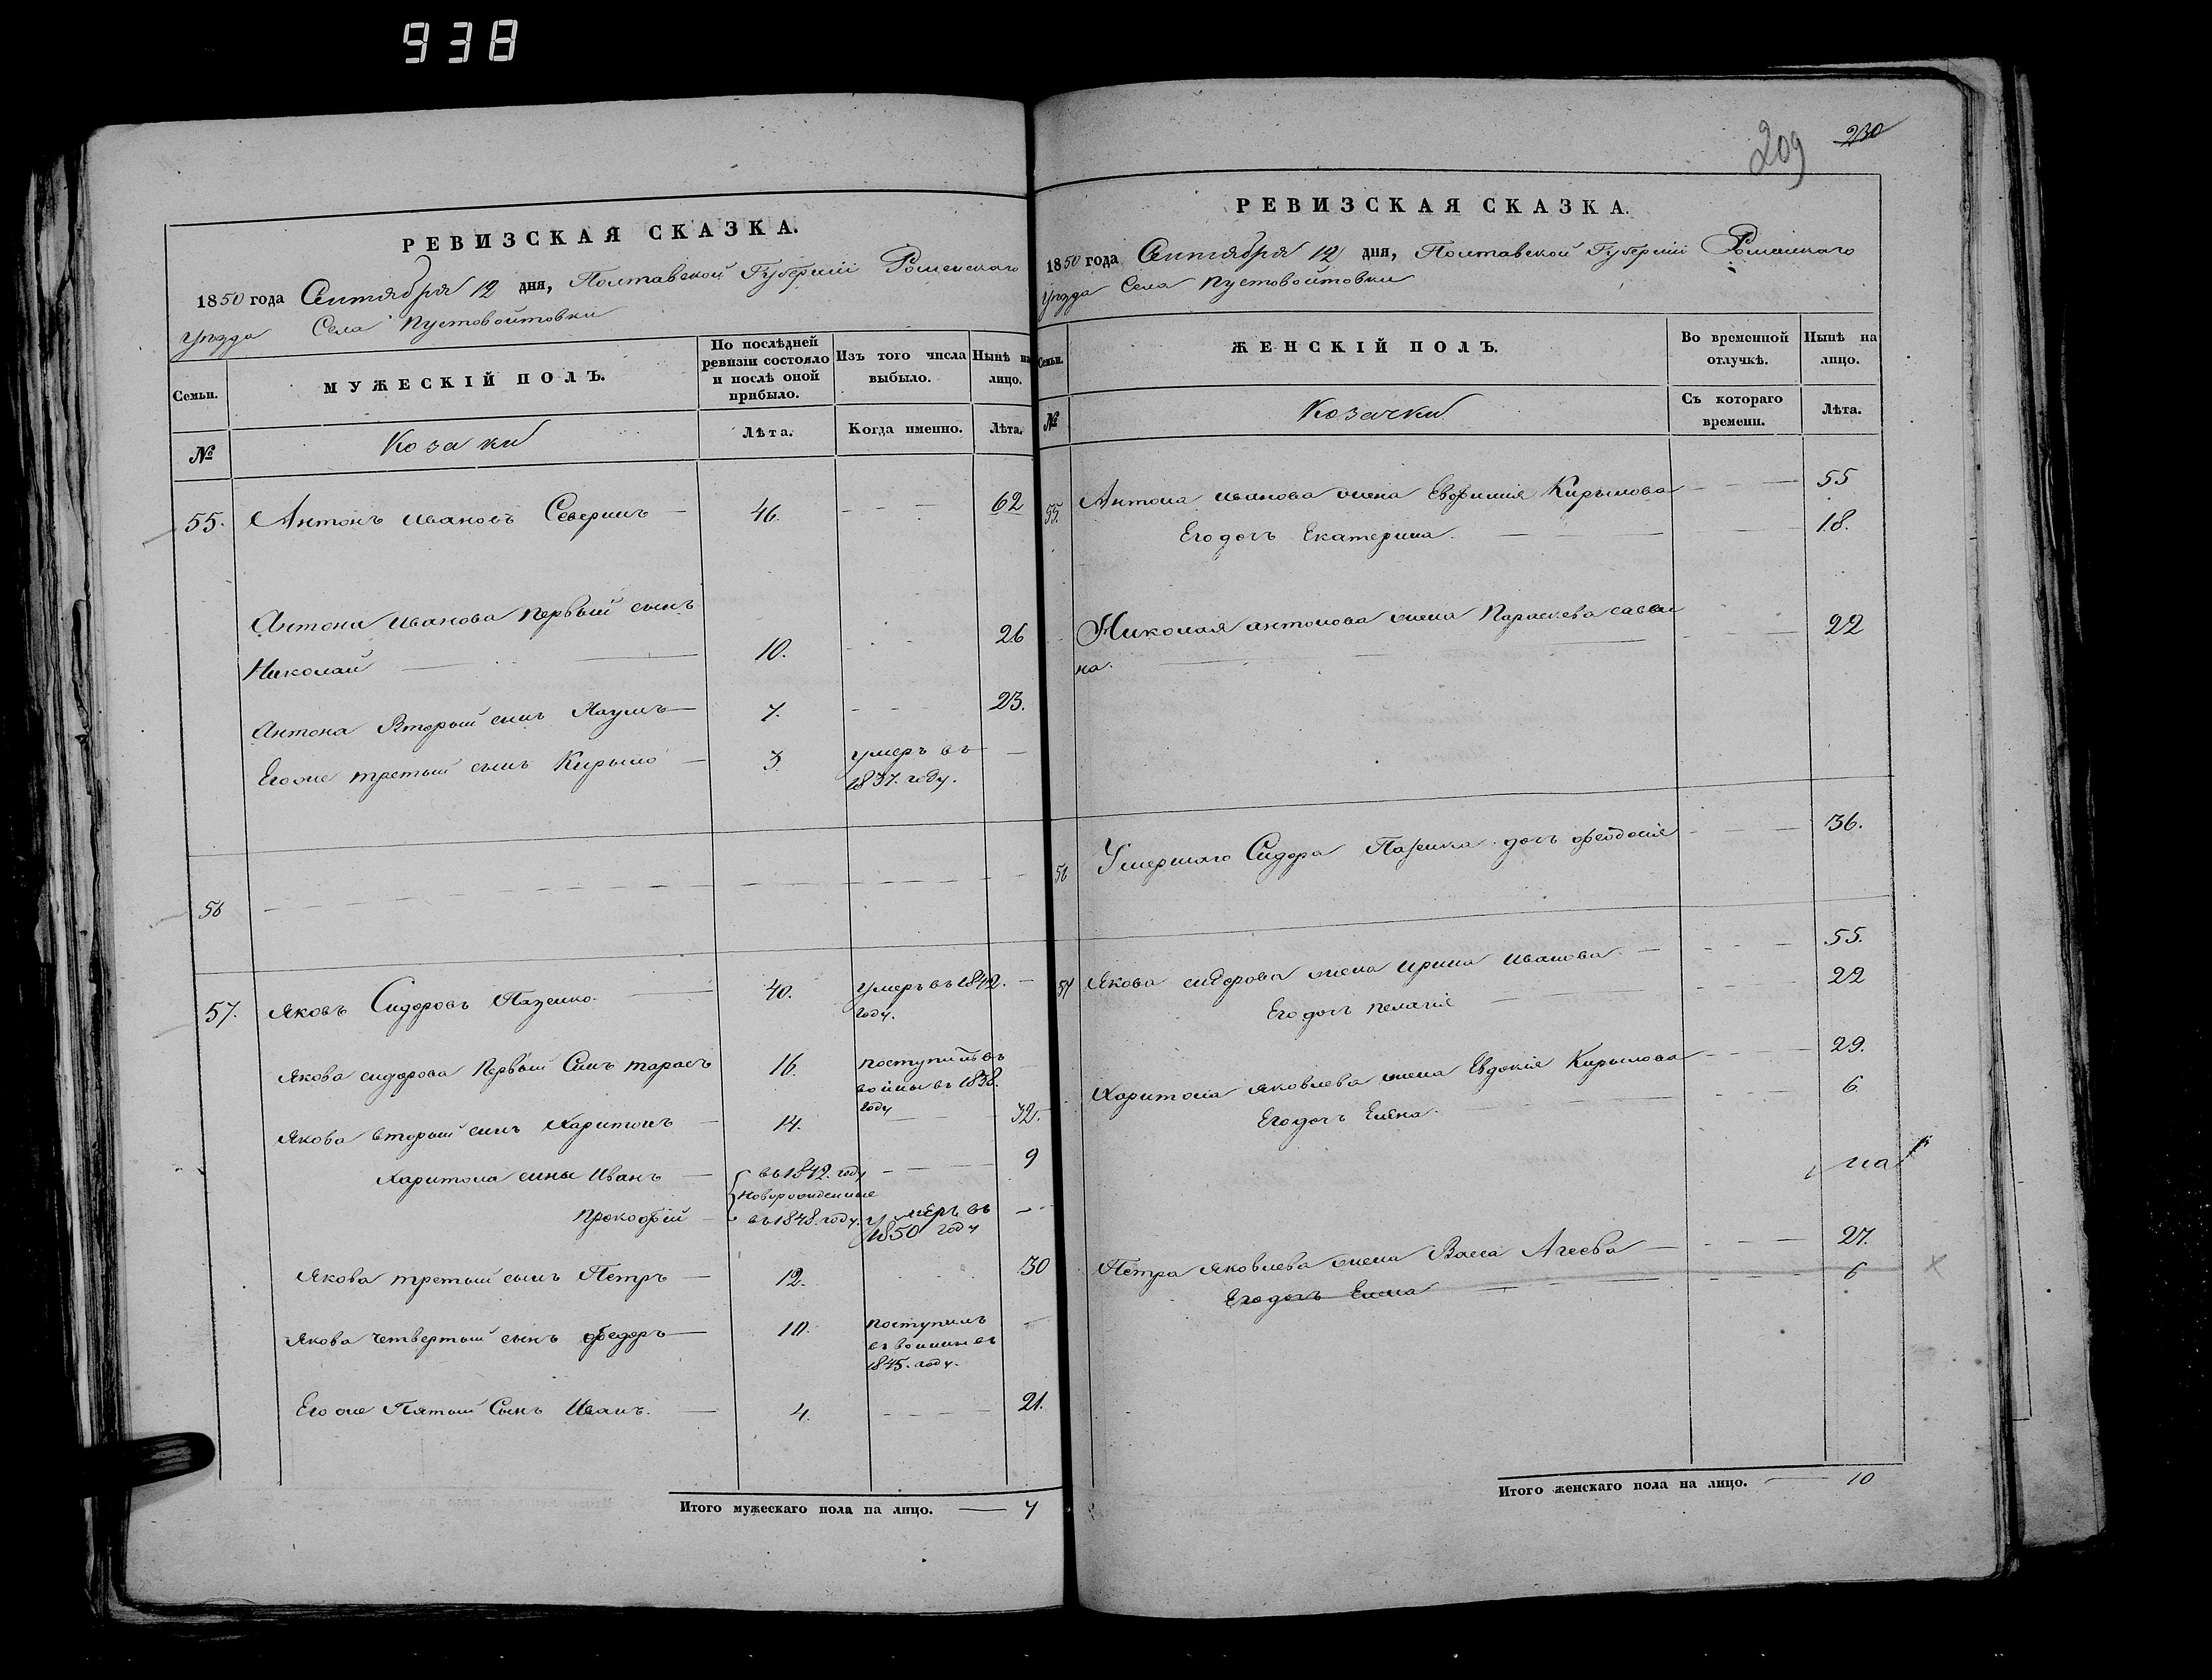 938
РЕВИЗСКАЯ СКАЗКА.
1850 года Сентября 12 дня, Полтавской Губерніи Роменскаго
уезда Села Пустовойтовки
Семьи.
МУЖЕСКІЙ ПОЛЪ.
По послѣдней
ревизіи состояло
и послѣ оной
прибыло.
Изъ того числа
выбыло.
Нынѣ на
лицо.
№
Козаки
Лѣта.
Когда именно.
Лѣта.
55. Антонъ Ивановъ Северинъ 46. 62
Антона Иванова Первый сынъ
Николай 10. 26
Антона Вторый сынъ Наумъ 7. 23.
Его же третый сынъ Кирыло 3. умеръ въ
1837. году.
56
57. Яковъ Сидоровъ Пазенко. 40. умеръ въ 1842.
году.
Якова сидорова Первый Сынъ тарасъ 16. поступилъ въ
войны въ 1838.
году
Якова вторый сынъ Харитонъ 14. 32.
Харитона сины Иванъ въ 1842. году 9
Новорожденные
Прокофій въ 1848. году. умеръ въ
1850 году
Якова третый сынъ Петръ 12. 30
Якова четвертый сынъ Федоръ 10. поступилъ
въ воины въ
1845. году.
Его же Пятый Сынъ Иванъ. 4. 21.
Итого мужескаго пола на лицо. 7
209 230
РЕВИЗСКАЯ СКАЗКА.
1850 года Сентября 12 дня, Полтавской Губерніи Роменскаго
уезда Села Пустовойтовки
Семьи.
ЖЕНСКІЙ ПОЛЪ.
Во временной
отлучкѣ.
Нынѣ на
лицо.
№
Козачки
Съ котораго
времени.
Лѣта.
55. Антона иванова жена Евфимія Кирылова 55
Его дочь Екатерина. 18.
Николая антонова жена Параскева савы
на. 22
56 Умершаго Сидора Пазенка дочь феодосія 36.
57 Якова сидорова жена ирина иванова 55.
Его дочь пелагія 22
Харитона яковлева жена Евдокія Кирылова 29.
Его дочь Елена. 6
Петра яковлева жена Васса Агеева 27.
Его дочь Елена 6
Итого женскаго пола на лицо. 10